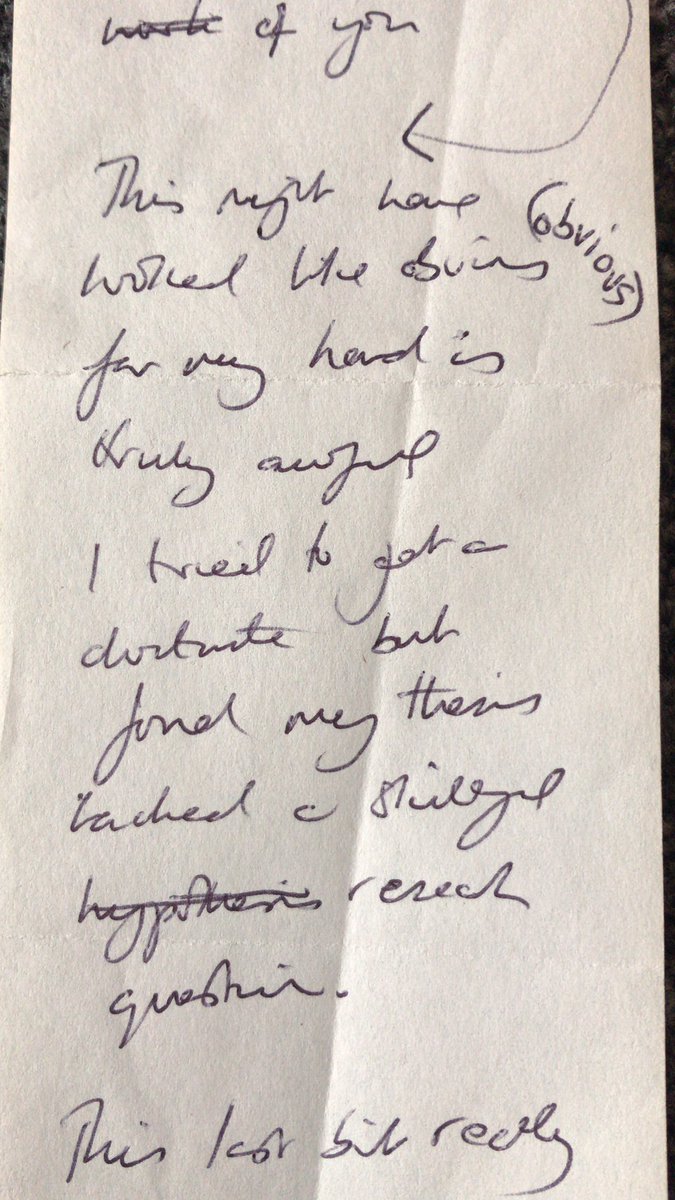 work of you
This might have (obvious)
looked like obvious
for my hand is
truly awful
I tried to get a
doctorate but
found my thesis
lacked a skillful
hypothesis research
question.
This last bit really